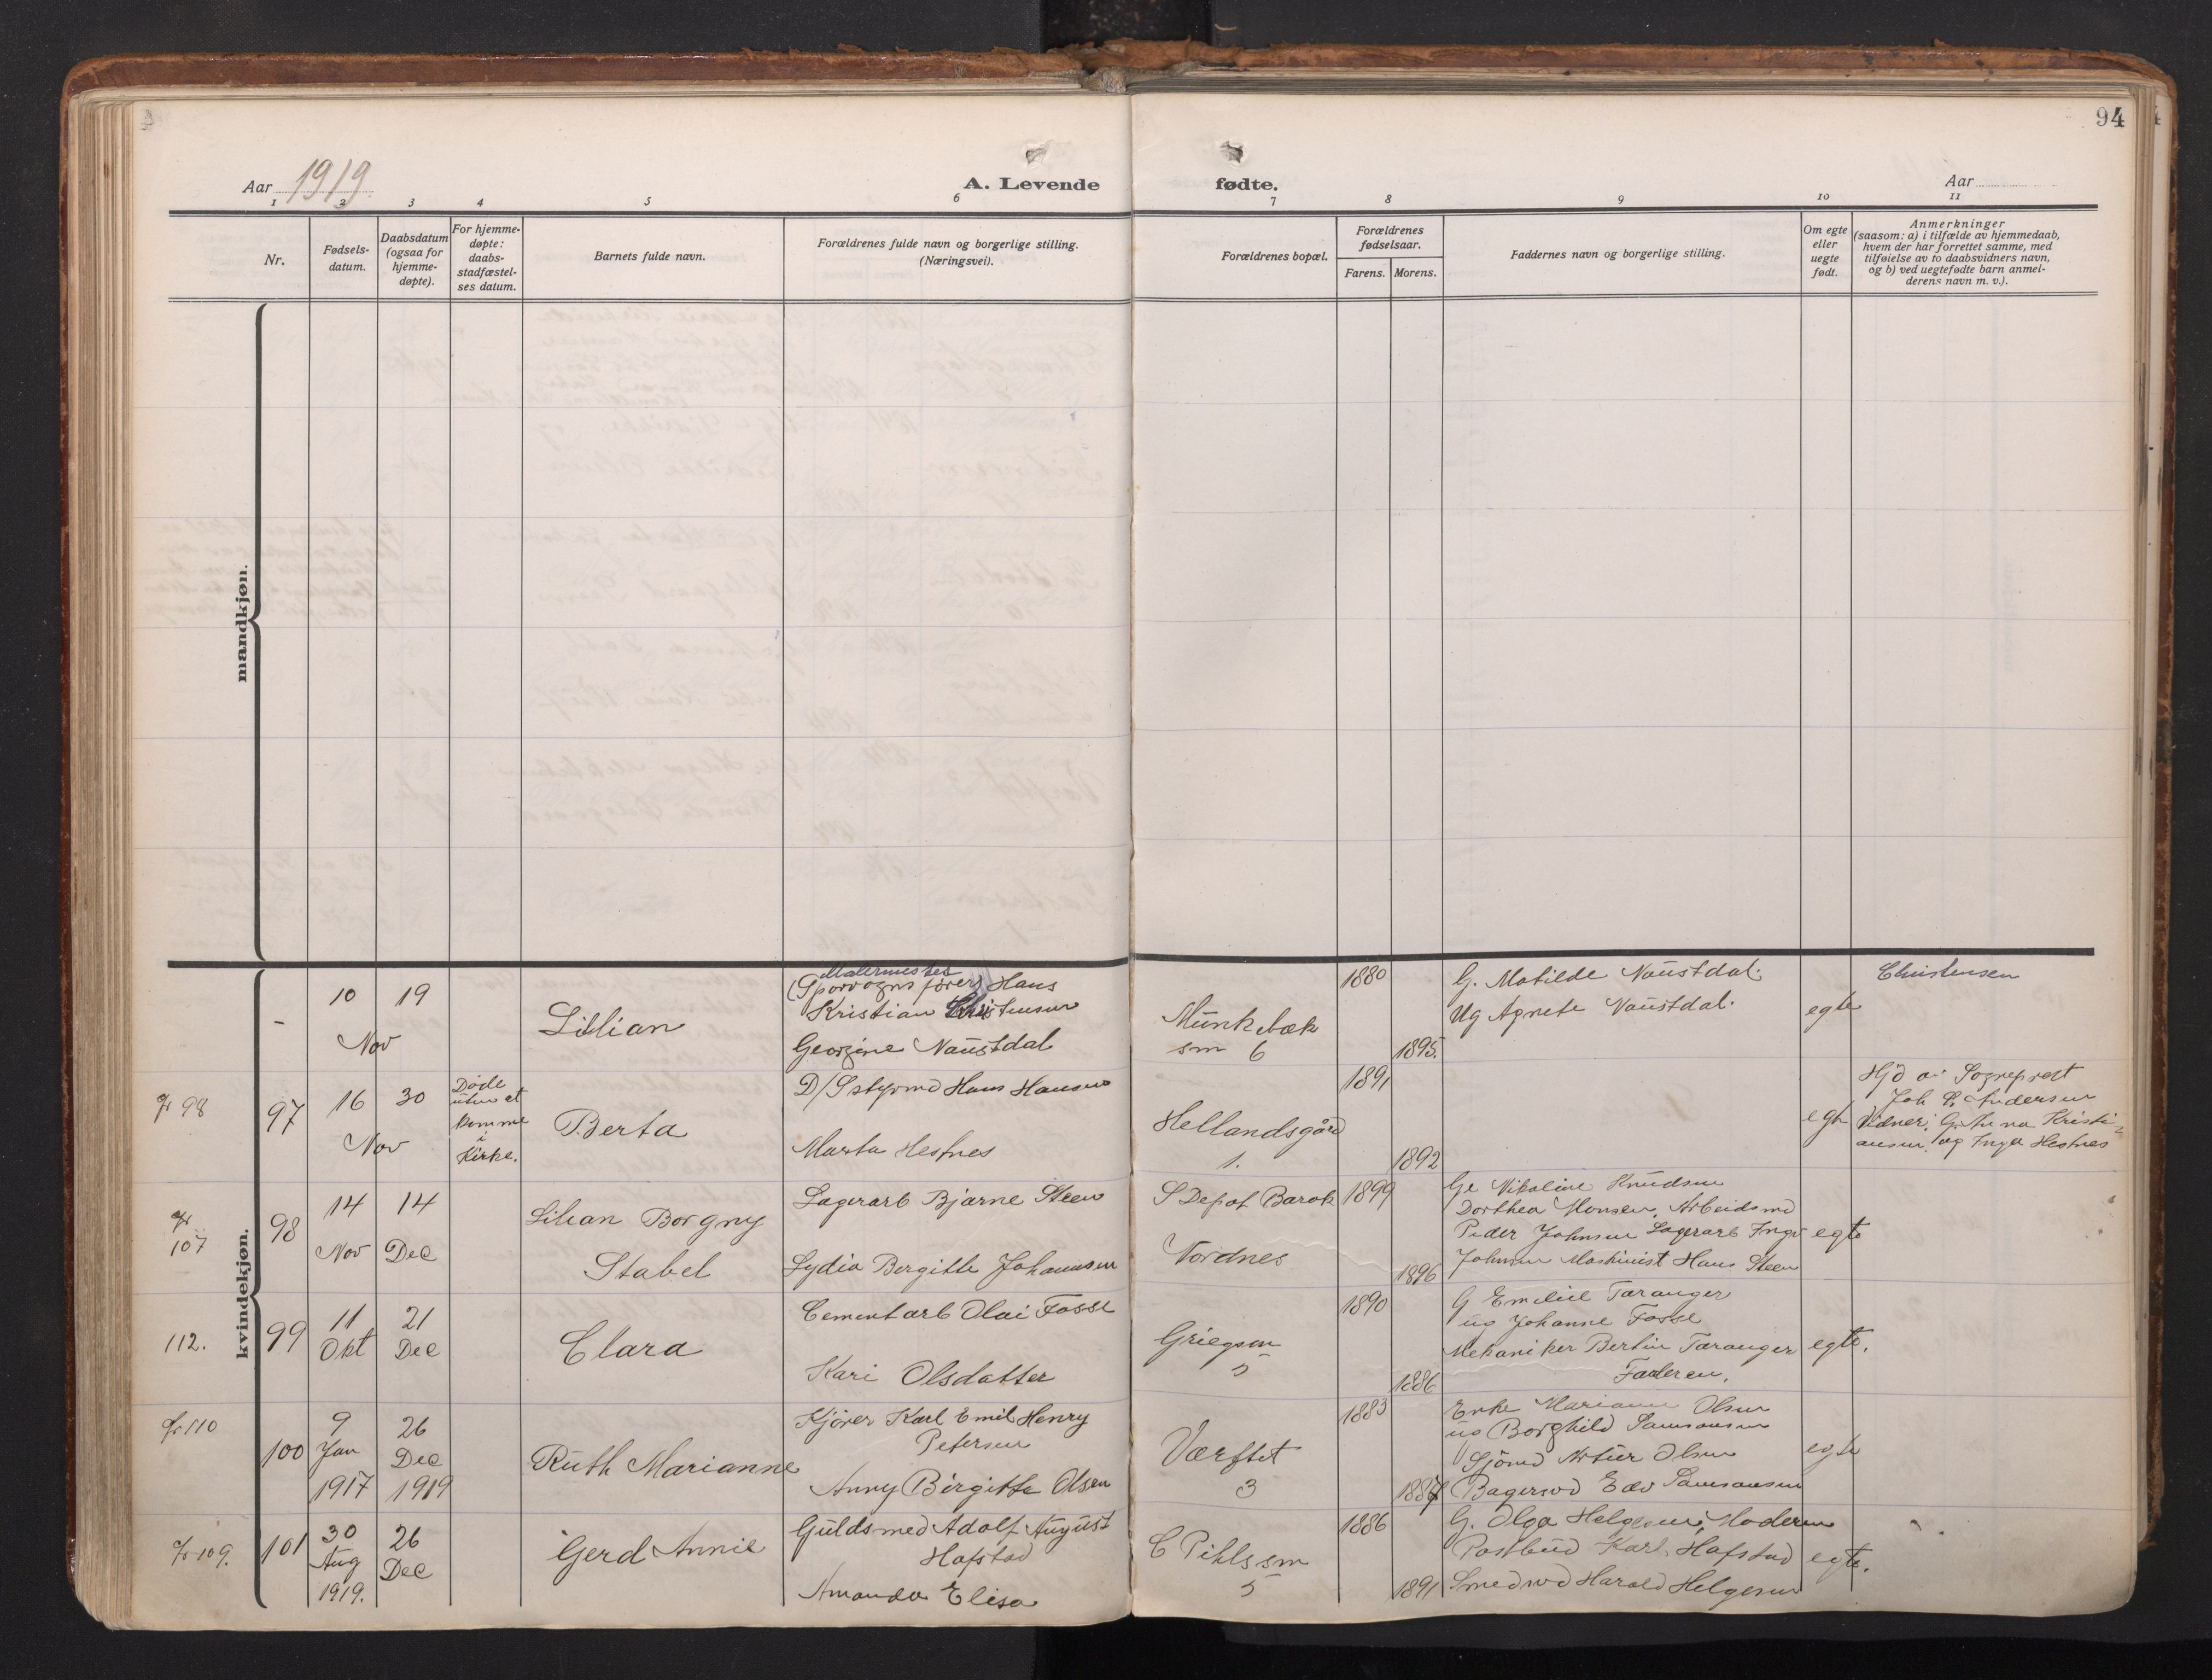 94
Aar 1919
A. Levende
fødte.
Aar
1 2 3 4 5 6 7 8 9 10 11
Nr.
Fødsels-
datum.
Daabsdatum
(ogsaa for
hjemme-
døpte).
For hjemme-
døpte:
daabs-
stadfæstel-
ses datum.
Barnets fulde navn.
Forældrenes fulde navn og borgerlige stilling.
(Næringsvei).
Forældrenes bopæl.
Forældrenes
fødselsaar.
Farens. Morens.
Faddernes navn og borgerlige stilling.
Om egte
eller
uegte
født.
Anmerkninger
(saasom: a) i tilfælde av hjemmedaab,
hvem der har forrettet samme, med
tilføielse av to daabsvidners navn,
og b) ved uegtefødte barn anmel-
derens navn m. v.).
mandkjøn.
kvindekjøn.
-
10 19
Nov
Lillian
Malermester
(Sporvognsfører) Hans
Kristian Christensen
Georgine Naustdal
Munkebæk
sm 6
1880
1895.
G. Matilde Naustdal.
Ug Agnete Naustdal.
egte
Christensen
98
97
16 30
Nov
Døde
uten at
komme
i
Kirke.
Berta
D/S styrmd Hans Hansen
Marta Hestnes
Hellandsgård
1.
1891
1892
egte
Hjd av Sogneprest
Joh Andersen
Vidner: G. Anna Kristi-
ansen og Inga Hestnes
107
98
14 14
Nov Dec
Lilian Borgny
Stabel
Lagerarb Bjarne Steen
Lydia Bergitte Johannsen
S Depot Barak
Nordnes
1899
1896
Ge Vikoline Knudsen
Dorthea Monsen, Arbeidsmd
Peder Johnsen Lagerarb Ingv
Johnsen Maskinist Hans Steen
egte
112.
99
11 21
Okt Dec
Clara
Cementarb Olai Fosse
Kari Olsdatter
Griegsm
5
1890
1886
G Emilie Taranger
ug Johanne Fosse
Mekaniker Bertin Taranger
Faderen.
egte.
110
100
9 26
Jan Dec
1917 1919
Ruth Marianne
Kjører Karl Emil Henry
Petersen
Anny Birgitte Olsen
Værftet
3
1883
Enke Marianne Olsen
ug Borghild Samsonsen
Sjømd Artur Olsen
Bagersvd Edv Samsonsen
egte
109.
101
30 26
Aug Dec
1919.
Gerd Annie
Guldsmed Adolf August
Hafstad
Amanda Elisa
C Pihls sm
5
1886
1891
G. Olga Helgesen, Moderen
Postbud Karl Hafstad
Smedsvd Harald Helgesen
egte.